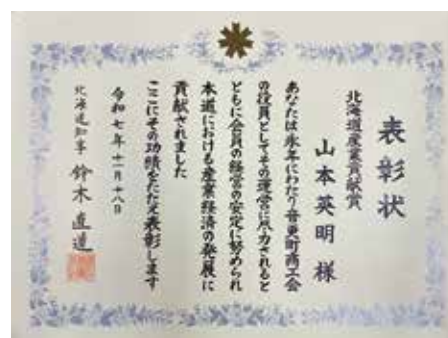 表彰状
北海道産業貢献賞
山本英明 様
あなたは永年にわたり音更町商工会
の役員としてその運営に尽力されると
ともに会員の経営の安定に努められ
本道における産業経済の発展に
貢献されました
ここにその功績をたたえ表彰します
令和七年十一月十八日
北海道知事 鈴木直道